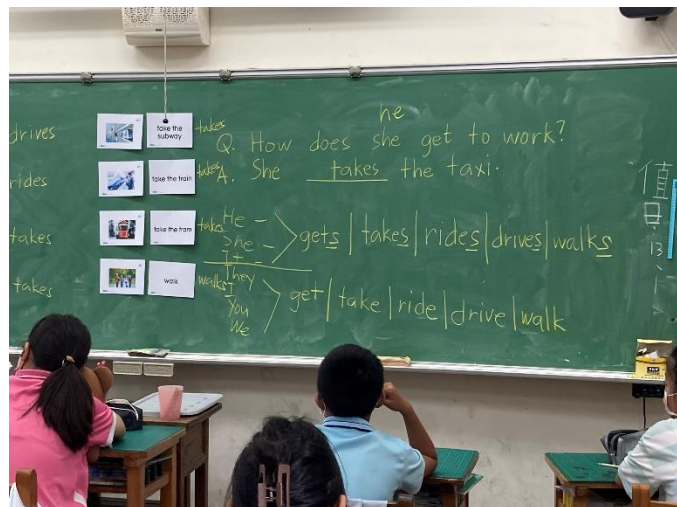 drives
rides
takes
takes
take the subway
takes
take the train
takes
take the tram
takes
walk
walks
he
Q. How does she get to work?
A. She takes the taxi.
He -
She -
It -
gets | takes | rides | drives | walks
They
I
You
We
get | take | ride | drive | walk
值日:13、